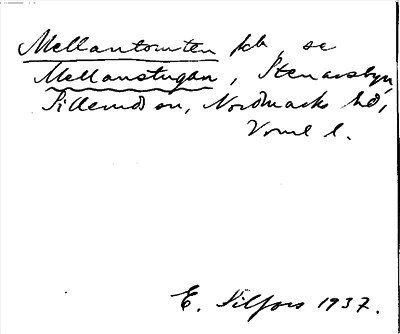 Mellantomten fcb se
Mellanstugan, Stenarsbyn,
Sillerud sn, Nordmarks hd,
Vrml l.
E. Silfors 1937.